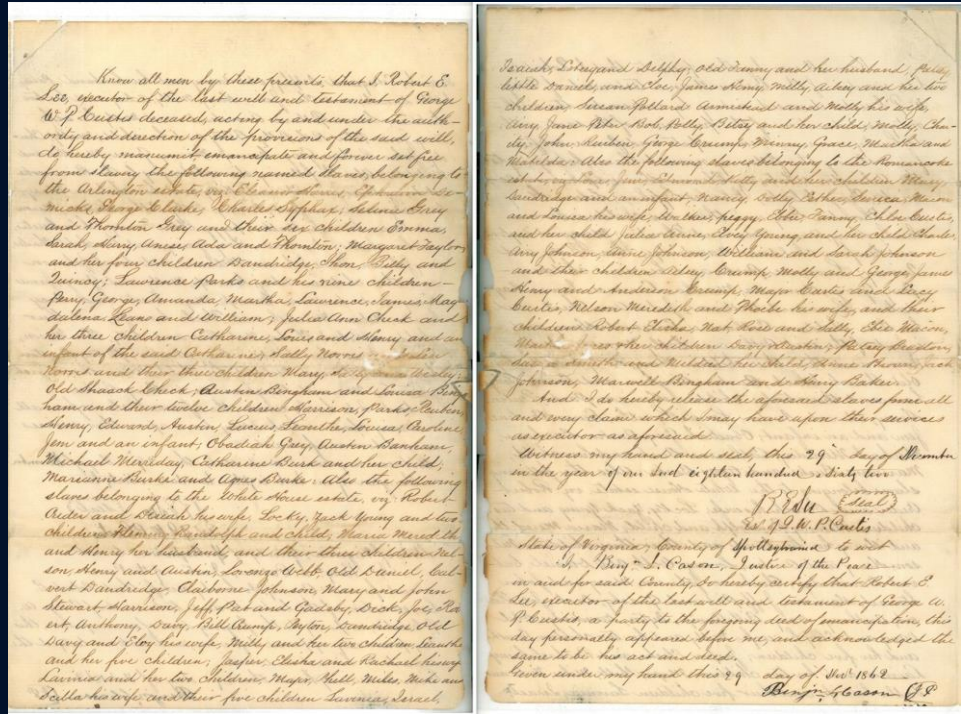 Know all men by these presents, that I, Robert E.
Lee, executor of the last will and testament of George
W. P. Custis deceased, acting by and under the auth-
ority and direction of the provisions of the said will,
do hereby manumit, emancipate and forever set free
from slavery the following named slaves, belonging to
the Arlington estate, viz: Eleanor Harris, Ephraim
George Clarke, Charles Syphax, Selina Grey
and Thornton Grey and their six children Emma,
Sarah, Harry, Anise, Ada and Thornton; Margaret Taylor
and her four children Dandridge, John, Billy and
Quincy; Lawrence Parks and his nine children —
Perry, George, Amanda, Martha, Lawrence, James, Mag-
dalena, Leano and William; Julia Ann Check and
her three children Catharine, Louis and Henry and an
infant of the said Catharine; Sally Norris
Norris and their three children Mary, and Wesley;
Old Shaack Check; Austin Bingham and Louisa Bing-
ham and their twelve children Harrison, Parks, Reuben,
Henry, Edward, Austin, Lucius, Leanthe, Louisa, Caroline
Jem and an infant; Obadiah Grey; Austin Banham,
Michael Merriday, Catharine Burk and her child;
Marianne Burke and Agnes Burke: Also the following
slaves belonging to the White House estate, viz: Robert
Crider and Desiah his wife, Locky, Zack Young and two
children, Fleming Randolph and child, Maria Meredith
and Henry her husband, and their three children Nel-
son, Henry and Austin, Lorenzo Webb, Old Daniel, Cal-
vert Dandridge, Claiborne Johnson, Mary and John
Stewart, Harrison, Jeff, Pat and Gadsby, Dick, Joe, Ro-
bert, Anthony, Davy, Bill Crump, Peyton, Dandridge, Old
Davy and Eloy his wife, Milly and her two children, Leanthe
and her five children, Jasper, Elisha and Rachael his wife
Lavinia and her two children, Major, Phill, Miles, Mike and
Scilla his wife and their five children Lavinia, Israel,
Isaiah, Loksey and Delphy, Old Fanny and her husband, Patsy,
little Daniel, and Cloe, James Henry, Milly, Ailey and her two
children Susan Pollard Armistead and Molly his wife
Airy, Jane Peter Bob, Polly, Betsy and her child, Molly, Char-
ity, John, Reuben, George Crump, Minny, Grace, Martha and
Matilda: Also the following slaves belonging to the Romancoke
estate, viz: Jerry, Edmund, Kitty and her children Mary
Dandridge and an infant, Nancy, Dolly, Esther, Serica, Macon
and Louisa his wife, Walker, Peggy, Ebbie, Fanny, Chloe Custis,
and her child Julia Anne, Elvey Young, and her child Charles,
Airy Johnson, Anne Johnson, William and Sarah Johnson
and their children Ailey, Crump, Molly and George, James
Henry and Anderson Crump, Major Custis and Lucy
Custis, Nelson Meredith and Phoebe his wife, and their
children Robert, Elisha, Nat, Rose and Sally, Ebbie Macon,
Martha Jones & her children Davy & Austin; Patsy Braxton,
Smith and Mildred her child, Anne Brown, Jack
Johnson, Marwell Bingham and Henry Baker.
And I do hereby release the aforesaid slaves from all
and every claim which I may have upon their services
as executor as aforesaid.
Witness my hand and seal, this 29 day of November
in the year of our Lord eighteen hundred & sixty two
R E Lee (seal)
Ex. of G. W. P. Custis
State of Virginia, County of Spottsylvania to wit
I, Benj. S. Cason, Justice of the Peace
in and for said County, do hereby certify that Robert E
Lee, executor of the last will and testament of George W.
P. Custis, a party to the foregoing deed of emancipation, this
day personally appeared before me, and acknowledged the
same to be his act and deed.
Given under my hand this 29 day of Decr 1862
Benj. S. Cason J.P.